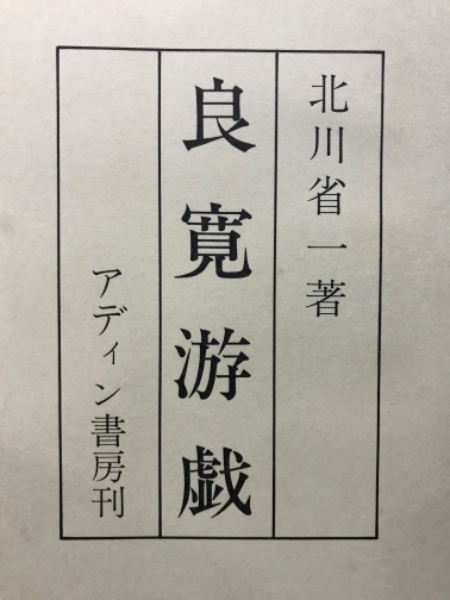 北川省一著
良寛游戯
アディン書房刊